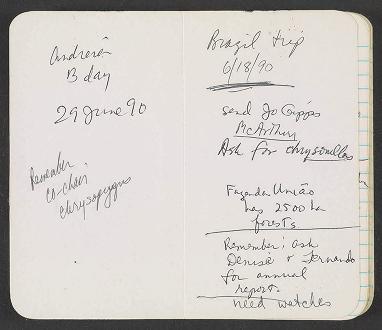 Andrea's
B day
29 June 90
Remember
co-chair
chrysopygus
Brazil trip
6/18/90
send Jo Gipps
McArthur
Ask for chrysomelas
Fazenda União
has 2500 ha
forests.
Remember; ask
Denise & Fernando
for annual
report.
need watches